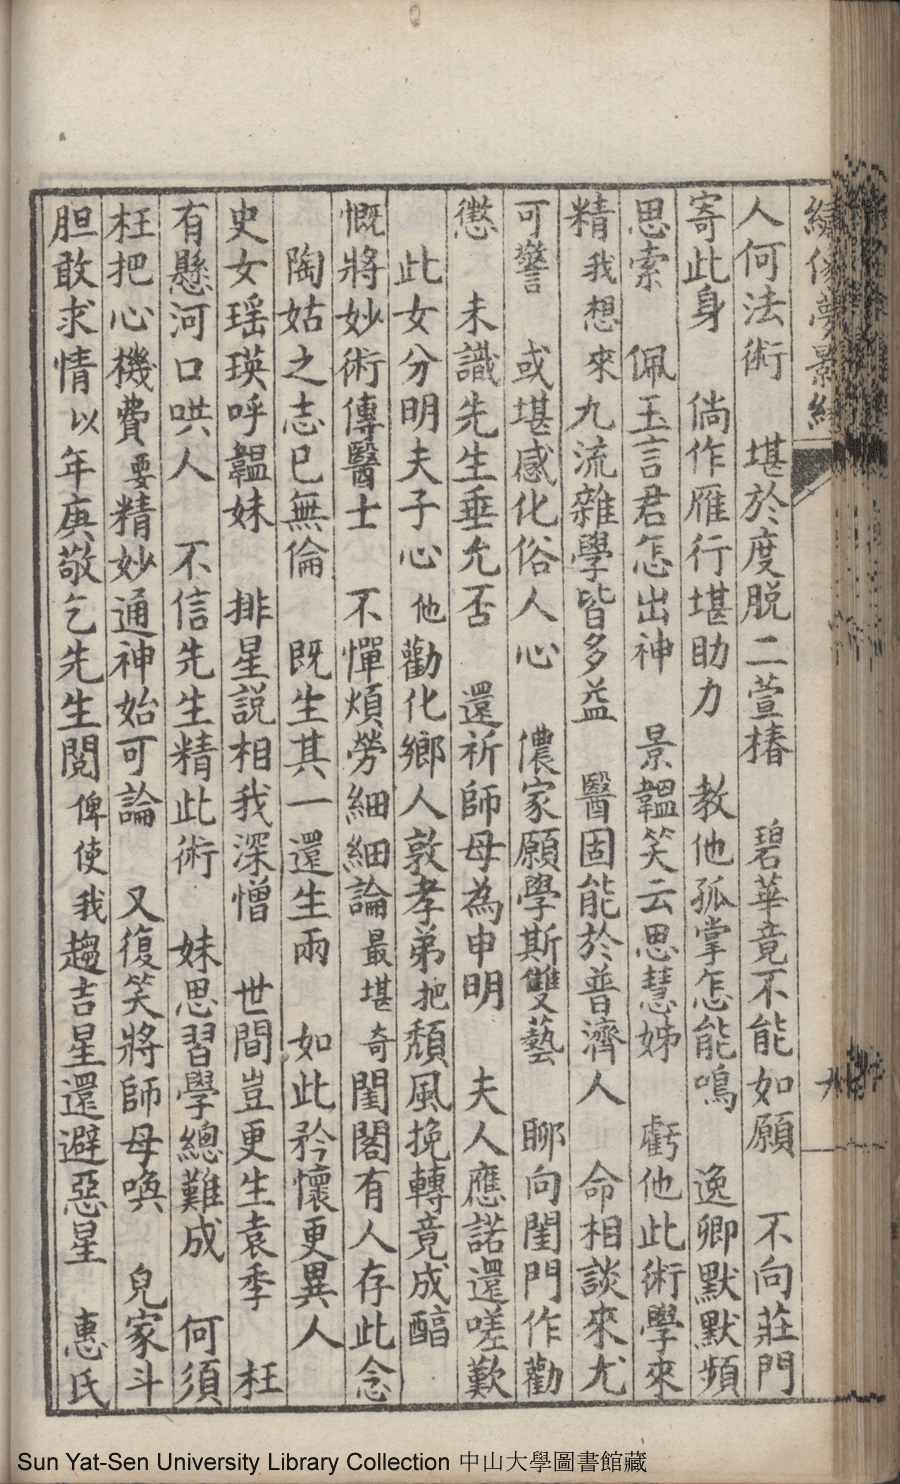 繡像夢影緣
人何法術　堪於度脫二萱椿　碧華竟不能如願　不向莊門
寄此身　倘作雁行堪助力　教他孤掌怎能鳴　逸卿默默頻
思索　佩玉言君怎出神　景韞笑云思慧姊　虧他此術學來
精我想來九流雜學皆多益　醫固能於普濟人　命相談來尤
可警　或堪感化俗人心　儂家願學斯雙藝　聊向閨門作勸
懲　未識先生垂允否　還祈師母為申明　夫人應諾還嗟歎
此女分明夫子心他勸化鄉人敦孝弟把頹風挽轉竟成醕
慨將妙術傳醫士　不憚煩勞細細論最堪奇閨閣有人存此念
陶姑之志已無倫　既生其一還生兩　如此矜懷更異人
史女瑶瑛呼韞妹　排星說相我深憎　世間豈更生袁季　枉
有懸河口哄人　不信先生精此術　妹思習學總難成　何須
枉把心機費要精妙通神始可論　又復笑將師母喚　兒家斗
胆敢求情以年庚敬乞先生閱俾使我趨吉星還避惡星　惠氏
Sun Yat-Sen University Library Collection 中山大學圖書館藏